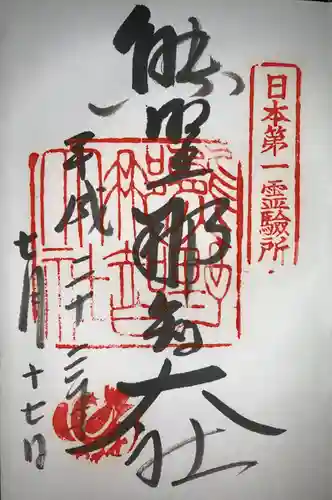 日本第一霊験所
熊野那智大社
平成二十二年
七月十七日